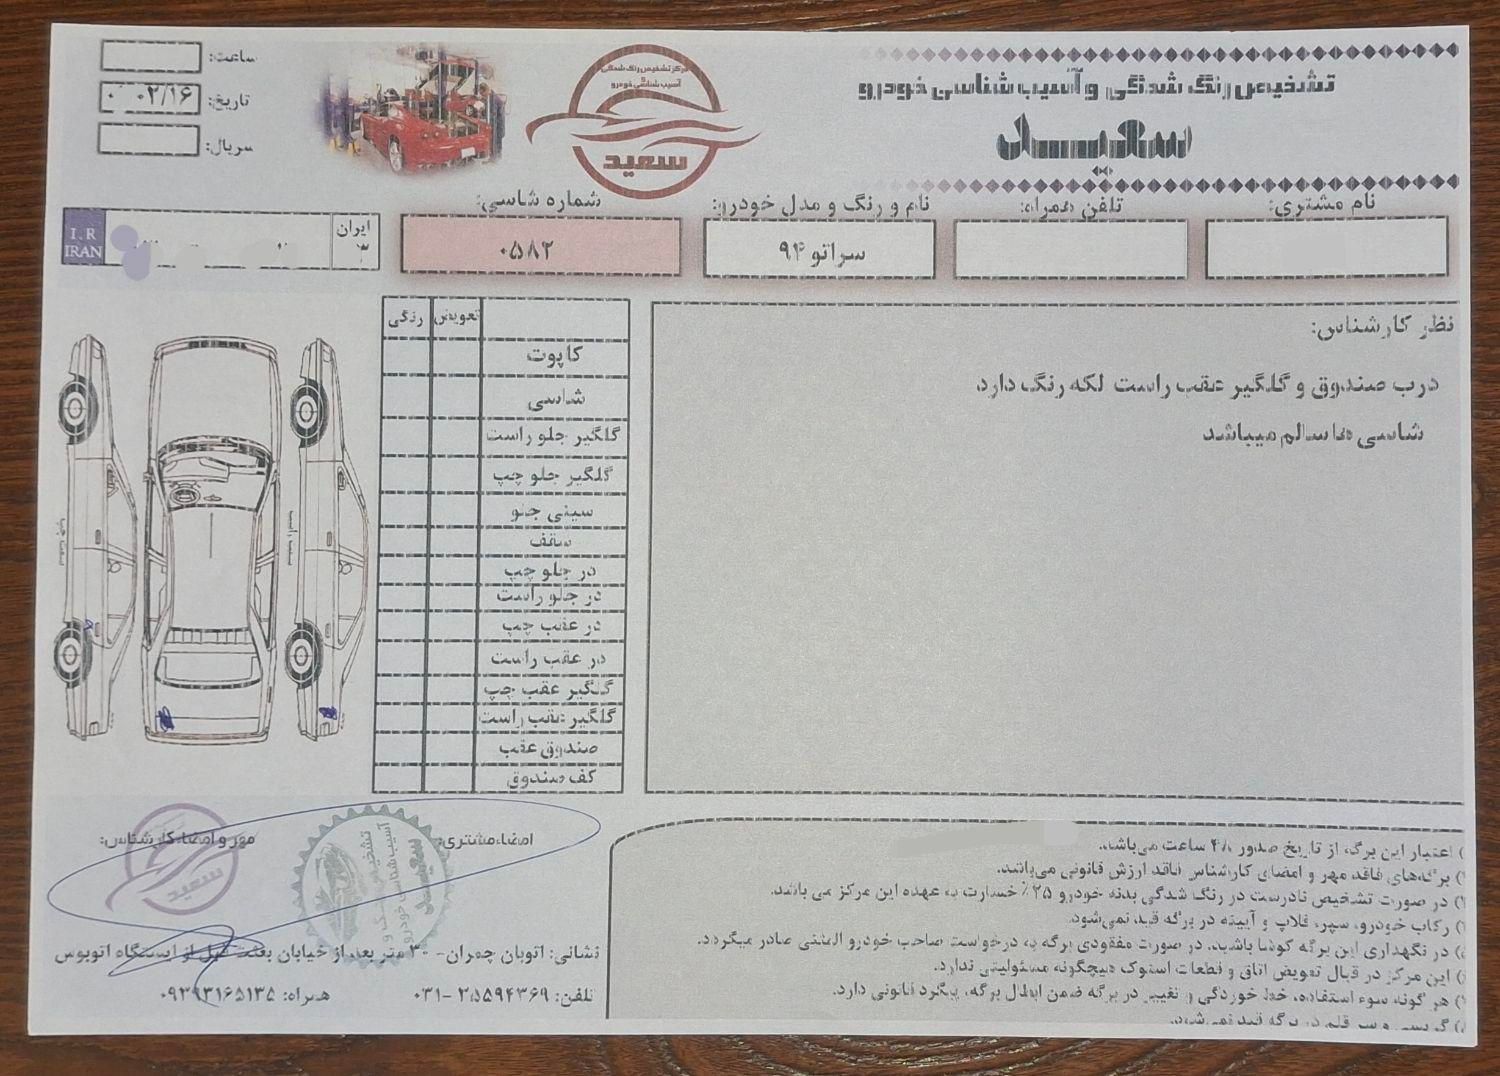 تشخیص رنگ شدگی و آسیب شناسی خودرو
سعید
مرکز تشخیص رنگ شدگی
و
آسیب شناسی خودرو
سعید
ساعت:
تاریخ: ۰۲/۱۶
سریال:
نام مشتری:
تلفن همراه:
نام و رنگ و مدل خودرو:
سراتو ۹۴
شماره شاسی:
۰۵۸۲
ایران
I.R
IRAN
نظر کارشناس:
درب صندوق و گلگیر عقب راست لکه رنگ دارد
شاسی ها سالم میباشد
تعویض رنگی
کاپوت
شاسی
گلگیر جلو راست
گلگیر جلو چپ
سینی جلو
سقف
در جلو چپ
در جلو راست
در عقب چپ
در عقب راست
گلگیر عقب چپ
گلگیر عقب راست
صندوق عقب
کف صندوق
سمت راست
سمت چپ
امضاء مشتری:
مهر و امضاء کارشناس:
سعید
نشانی: اتوبان چمران- ۳۰ متر بعد از خیابان بعثت قبل از ایستگاه اتوبوس
تلفن: ۳۵۵۹۴۳۶۹ -۰۳۱ همراه: ۰۹۳۹۳۱۶۵۱۳۵
) اعتبار این برگه از تاریخ صدور ۴۸ ساعت می‌باشد.
) برگه‌های فاقد مهر و امضای کارشناس فاقد ارزش قانونی می‌باشد.
) در صورت تشخیص نادرست در رنگ شدگی بدنه خودرو ۲۵٪ خسارت به عهده این مرکز می باشد.
) رکاب خودرو، سپر، قلاپ و آیینه در برگه قید نمی‌شود.
) در نگهداری این برگه کوشا باشید. در صورت مفقودی برگه به درخواست صاحب خودرو المثنی صادر میگردد.
) این مرکز در قبال تعویض اتاق و قطعات استوک هیچگونه مسئولیتی ندارد.
) هر گونه سوء استفاده، خط خوردگی و تغییر در برگه ضمن ابطال برگه، پیگرد قانونی دارد.